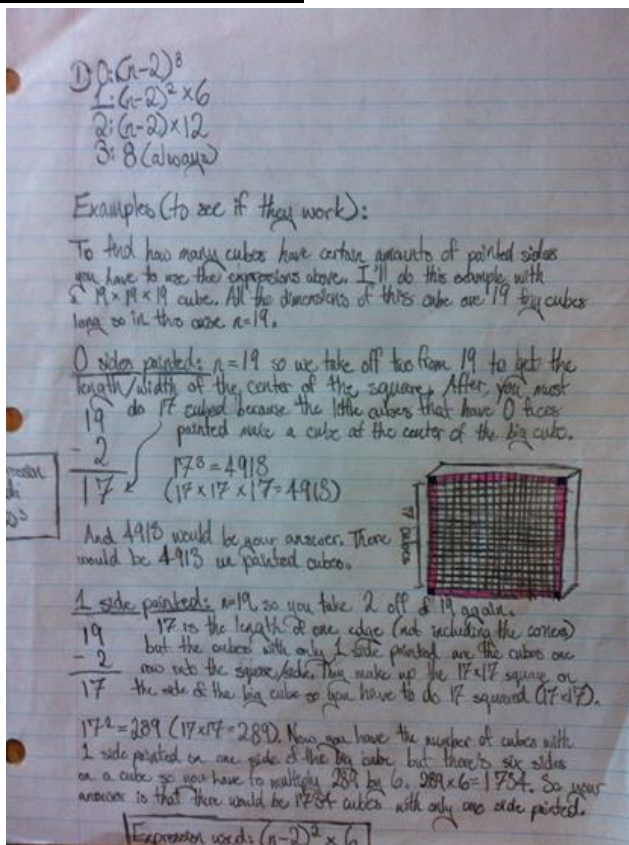 D) 0: (n-2)³
1: (n-2)² × 6
2: (n-2) × 12
3: 8 (always)
Examples (to see if they work):
To find how many cubes have certain amounts of painted sides
you have to use the expressions above. I'll do this example with
a 19 × 19 × 19 cube. All the dimensions of this cube are 19 tiny cubes
long so in this case n=19.
0 sides painted: n=19 so we take off two from 19 to get the
length/width of the center of the square. After, you must
19 do 17 cubed because the little cubes that have 0 faces
- 2 painted make a cube at the center of the big cube.
17
17³ = 4913
(17 × 17 × 17 = 4913)
17 cubes
And 4913 would be your answer. There
would be 4913 un painted cubes.
1 side painted: n=19 so you take 2 off of 19 again.
19 17 is the length of one edge (not including the corners)
- 2 but the cubes with only 1 side painted are the cubes one
row into the square/side. They make up the 17×17 square on
17 the side of the big cube so you have to do 17 squared (17×17).
17² = 289 (17×17=289). Now you have the number of cubes with
1 side painted on one side of the big cube but there's six sides
on a cube so you have to multiply 289 by 6. 289×6=1734. So your
answer is that there would be 1734 cubes with only one side painted.
Expression used: (n-2)² × 6